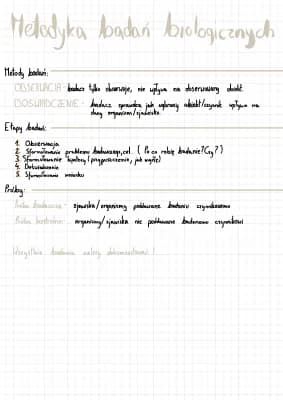 Metodyka badań biologicznych
Metody badań:
OBSERWACJA - badacz tylko obserwuje, nie wpływa na obserwowany obiekt
DOŚWIADCZENIE - badacz sprawdza, jak wybrany obiekt/czynnik wpływa na
dany organizm/zjawisko
Etapy badań:
1. Obserwacja
2. Sformułowanie problemu badawczego, cel. ( Po co robię badanie? Czy? )
3. Sformułowanie hipotezy (przypuszczenie, jak wyjdzie)
4. Doświadczenie
5. Sformułowanie wniosku
Próby:
Próba badawcza - zjawiska/organizmy poddawane badaniu czynnikowi
Próba kontrolna - organizmy/zjawiska nie poddawane badanemu czynnikowi
Wszystkie badania należy dokumentować!